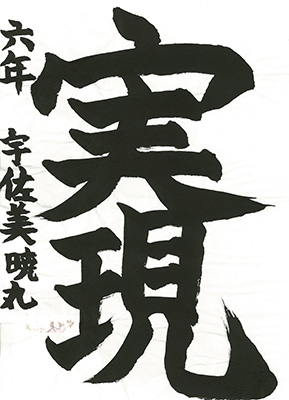 実現
六年 宇佐美暁丸